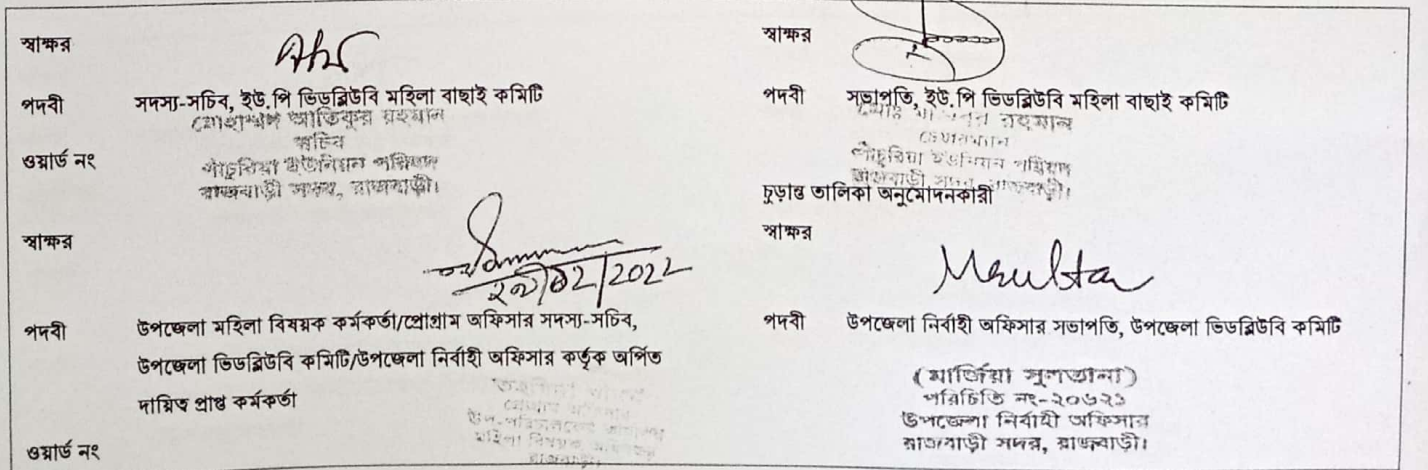 স্বাক্ষর
পদবী সদস্য-সচিব, ইউ.পি ভিডব্লিউবি মহিলা বাছাই কমিটি
মোহাম্মদ আতিকুর রহমান
সচিব
ওয়ার্ড নং
পাঁচুরিয়া ইউনিয়ন পরিষদ
রাজবাড়ী সদর, রাজবাড়ী।
স্বাক্ষর
পদবী উপজেলা মহিলা বিষয়ক কর্মকর্তা/প্রোগ্রাম অফিসার সদস্য-সচিব,
উপজেলা ভিডব্লিউবি কমিটি/উপজেলা নির্বাহী অফিসার কর্তৃক অর্পিত
দায়িত্ব প্রাপ্ত কর্মকর্তা
মহিলা বিষয়ক
রাজবাড়ী।
ওয়ার্ড নং
স্বাক্ষর
পদবী সভাপতি, ইউ.পি ভিডব্লিউবি মহিলা বাছাই কমিটি
মোঃ রহমান
চেয়ারম্যান
পাঁচুরিয়া ইউনিয়ন পরিষদ
রাজবাড়ী সদর, রাজবাড়ী।
চুড়ান্ত তালিকা অনুমোদনকারী
স্বাক্ষর
পদবী উপজেলা নির্বাহী অফিসার সভাপতি, উপজেলা ভিডব্লিউবি কমিটি
(মার্জিয়া সুলতানা)
পরিচিতি নং-২০৬২১
উপজেলা নির্বাহী অফিসার
রাজবাড়ী সদর, রাজবাড়ী।